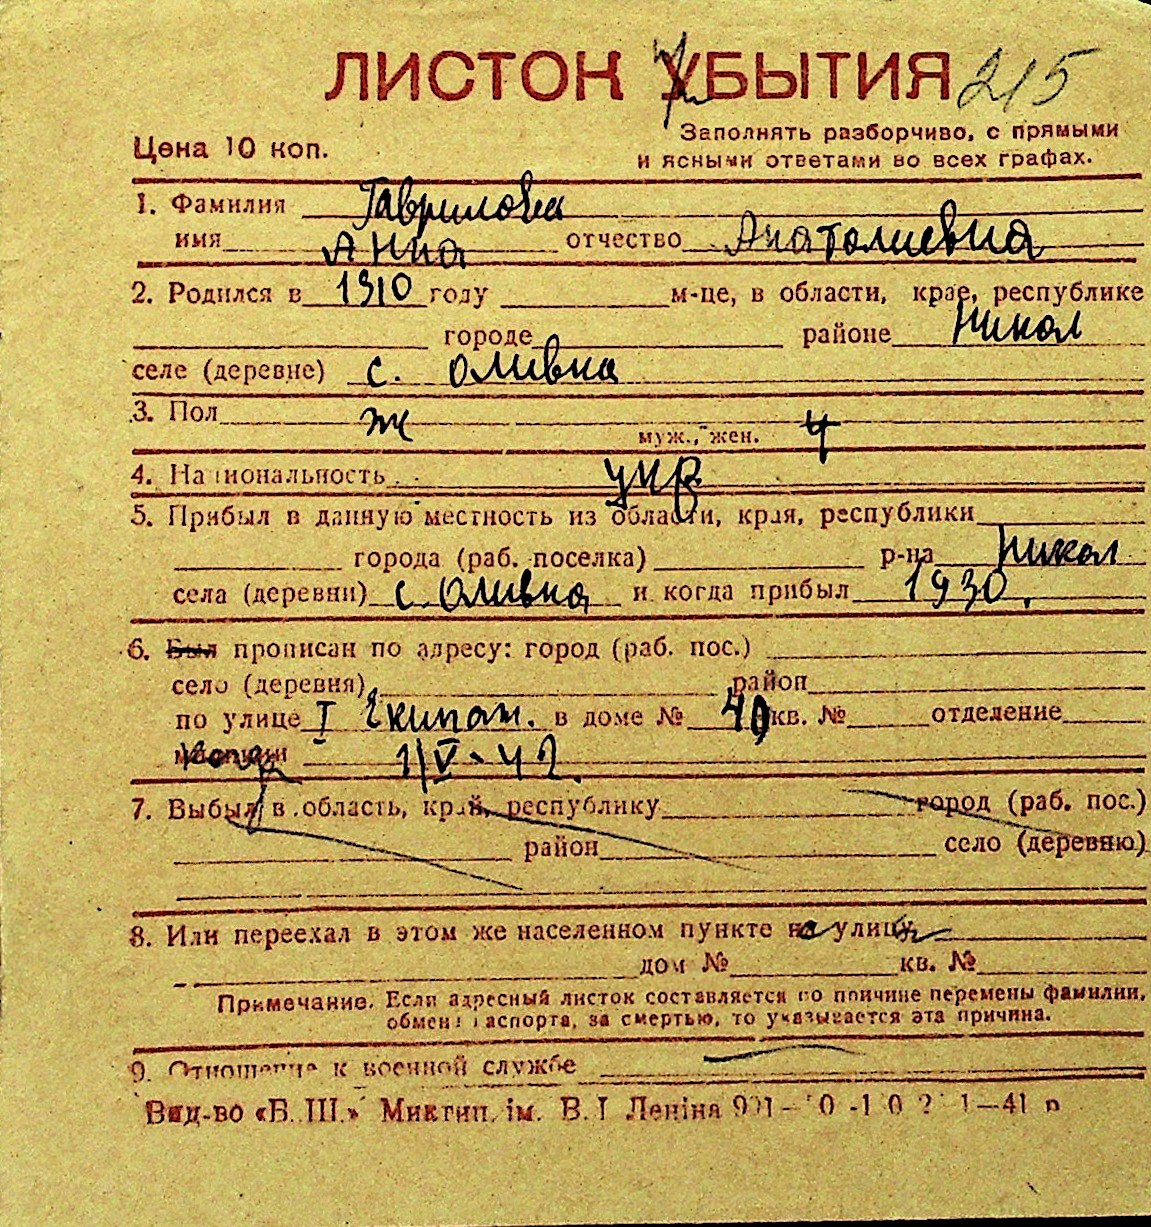 ЛИСТОК УБЫТИЯ 215
Цена 10 коп.
Заполнять разборчиво, с прямыми
и ясными ответами во всех графах.
1. Фамилия Гаврилова
имя Анна отчество Анатолиевна
2. Родился в 1910 году м-це, в области, крае, республике
городе районе Никол
селе (деревне) с. Оливна
3. Пол ж муж., жен. 4
4. Национальность укр.
5. Прибыл в данную местность из области, края, республики
города (раб. поселка) р-на Никол
села (деревни) с. Оливна и когда прибыл 1930.
6. Был прописан по адресу: город (раб. пос.)
село (деревня) район
по улице I Екипаж. в доме № 40 кв. № отделение
1/V-42.
7. Выбыл в область, край, республику город (раб. пос.)
район село (деревню)
8. Или переехал в этом же населенном пункте на улицу
дом № кв. №
Примечание. Если адресный листок составляется по причине перемены фамилии,
обмена паспорта, за смертью, то указывается эта причина.
9. Отношение к военной службе
Вид-во «Б. Ш.» Миктип. ім. В. І Леніна